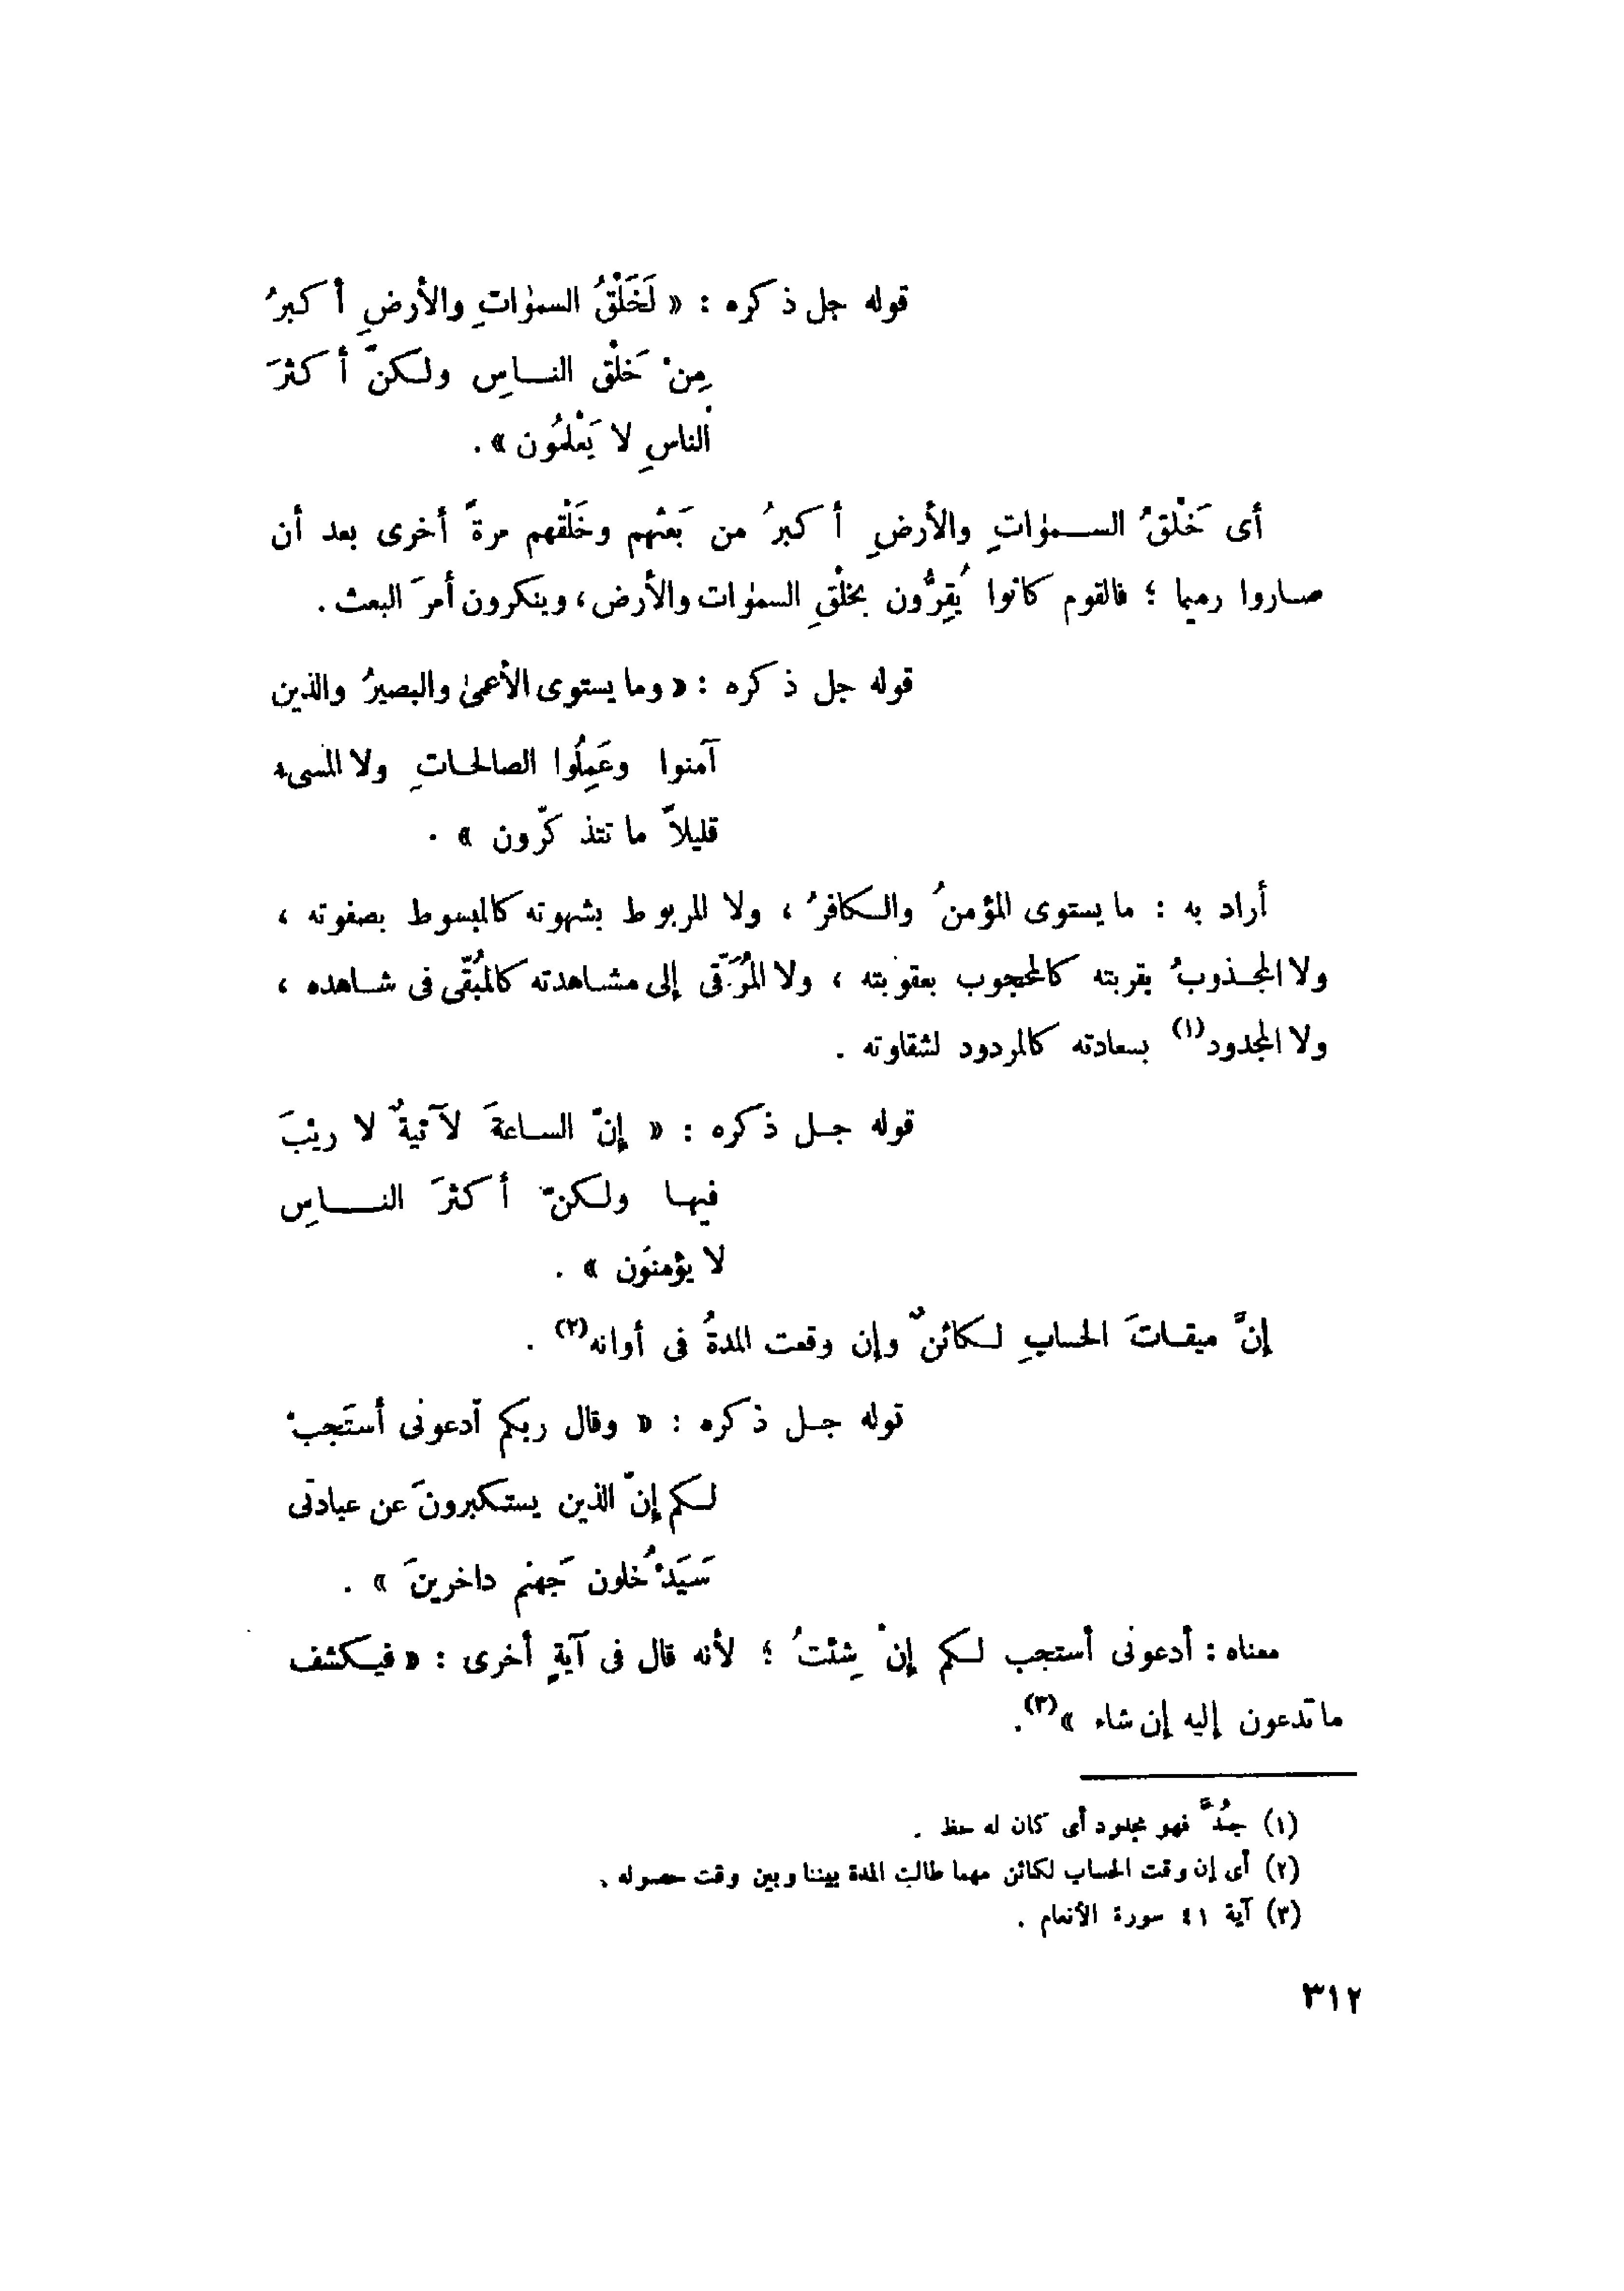 قوله جل ذكره : « لَخَلْقُ السمٰوات والأرضِ أكبرُ
مِنْ خَلْق الناسِ ولكنّ أكثرَ
الناسِ لا يَعْلَمُون » .
أى خَلْقُ السمٰواتِ والأرضِ أكبرُ من بَعْثهم وخَلْقهم مرةً أخرى بعد أن
صاروا رميما ؛ فالقوم كانوا يُقِرُّون بخلْقِ السمٰوات والأرض، وينكرون أمرَ البعث .
قوله جل ذكره : « وما يستوى الأعمىٰ والبصيرُ والذين
آمنوا وعَمِلُوا الصالحاتِ ولا المسىء
قليلاً ما تتذكّرون » .
أراد به : ما يستوى المؤمنُ والكافرُ ، ولا المربوط بشهوته كالمبسوط بصفوته ،
ولا المجذوبُ بقربته كالمحجوب بعقوبته ، ولا المُرَقّى إلى مشاهدته كالمُبَقّى فى شاهده ،
ولا المجدود(١) بسعادته كالمردود لشقاوته .
قوله جل ذكره : « إنّ الساعةَ لآتيةٌ لا ريْبَ
فيها ولكنّ أكثرَ الناسِ
لا يؤمنُون » .
إنَّ ميقاتَ الحسابِ لكائنٌ وإن وقعت المدةُ فى أوانه(٢) .
قوله جل ذكره : « وقال ربكم ادعونى أستَجبْ
لكم إنّ الذين يستكبرونَ عن عبادتى
سَيَدْخُلون جَهنم داخرينَ » .
معناه : أدعونى أستجب لكم إنْ شِئتُ ؛ لأنه قال فى آيةٍ أخرى : « فيكشف
ما تدعون إليه إن شاء »(٣).
(١) جُدَّ فهو مجدود أى كان له حظ .
(٢) أى إن وقت الحساب لكائن مهما طالت المدة بيننا وبين وقت حصوله .
(٣) آية ٤١ سورة الأنعام .
٣١٢